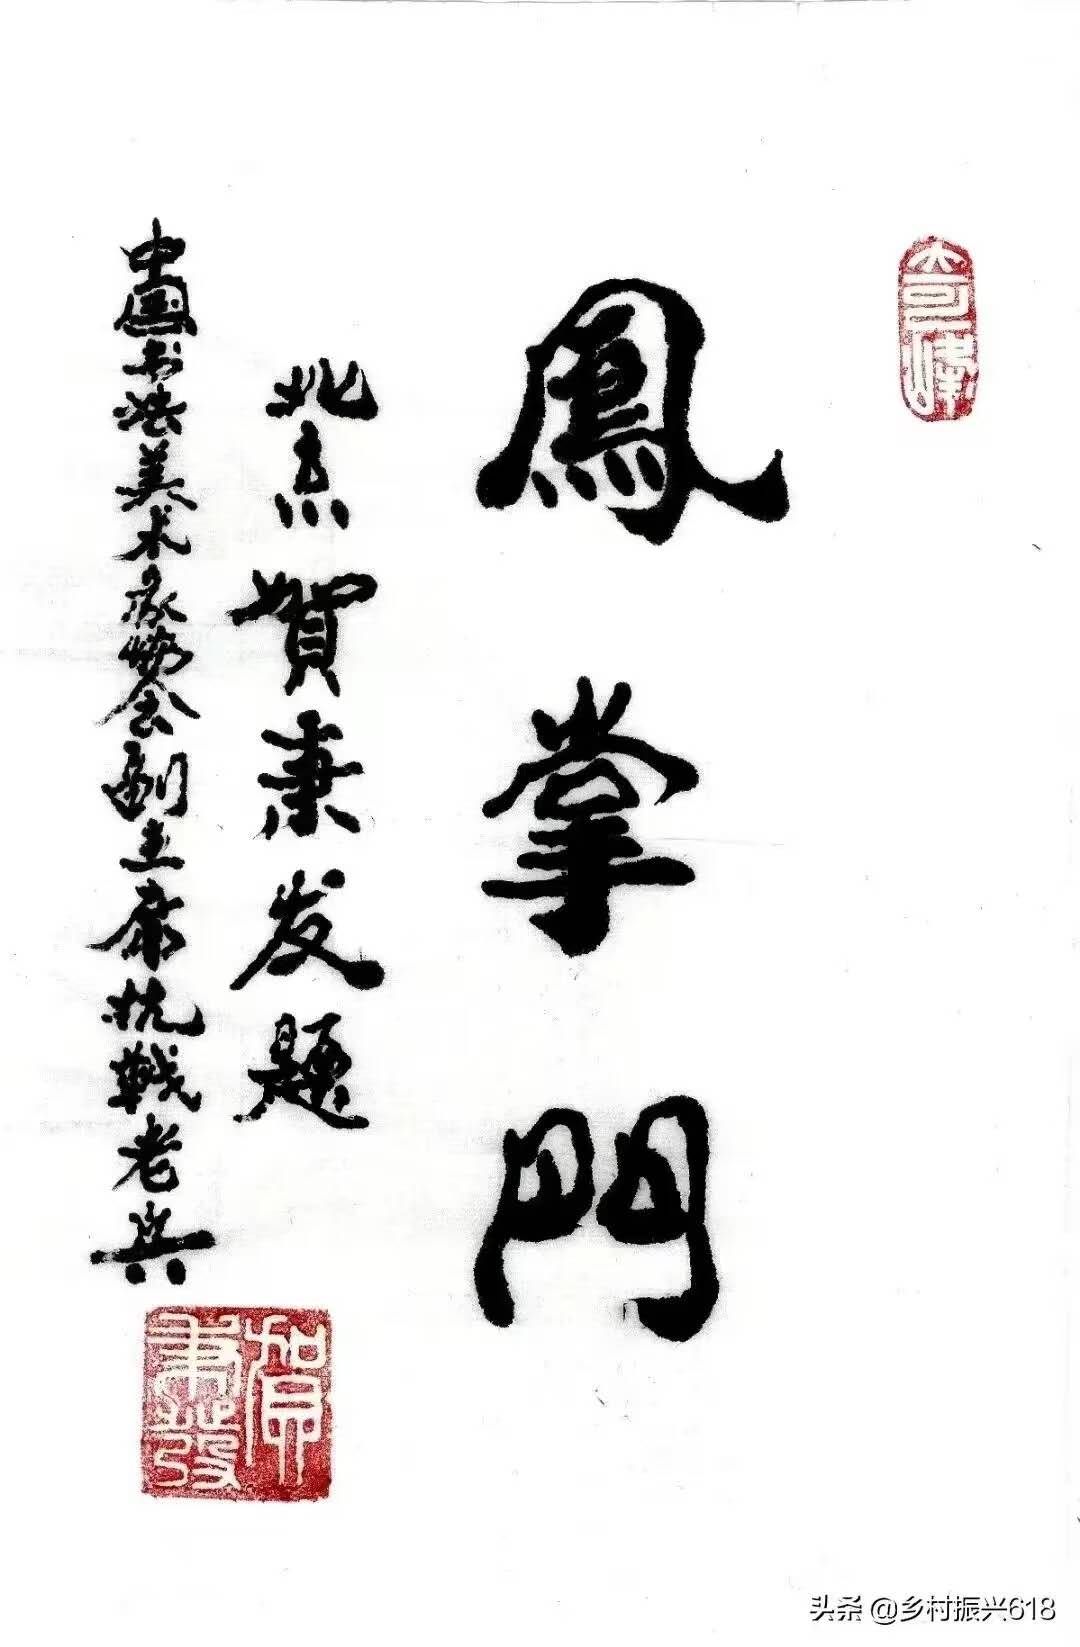 奇峰
鳳掌門
北京賀秉发題
中国书法美术家协会副主席抗戰老兵
賀秉發
头条 @乡村振兴618